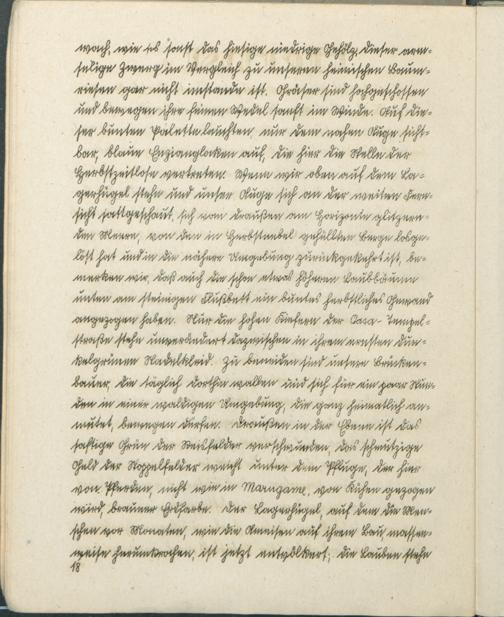 wach, wie es sonst das hiesige niedrige Gehölz, dieser arm-
selige Zwerg im Vergleich zu unseren heimischen Baum-
riesen gar nicht imstande ist. Gräser sind hochgeschossen
und bewegen ihre feinen Wedel sanft im Winde. Auf die-
ser bunten Palette leuchten, nur dem nahen Auge sicht-
bar, blaue Enzianglocken auf, die hier die Stelle der
Herbstzeitlose vertreten. Wenn wir oben auf dem La-
gerhügel stehn und unser Auge sich an der weiten Fern-
sicht sattgeschaut, sich von draußen am Horizonte glitzern-
den Meere, von den in Herbstnebel gehüllten Berge losge-
löst hat und in die nähere Umgebung zurückgekehrt ist, be-
merken wir, daß auch die schon etwas höheren Laubbäume
unten am steinigen Flußbett ein buntes herbstliches Gewand
angezogen haben. Nur die hohen Kiefern der Tempel-
straße stehn unverändert dazwischen in ihrem ernsten dun-
kelgrünen Nadelkleid. Zu beneiden sind unsere Brücken-
bauer, die täglich dorthin wallen und sich für ein paar Stun-
den in einer waldigen Umgebung, die ganz heimatlich an-
mutet, bewegen dürfen. Draußen in der Ebene ist das
saftige Grün der Reisfelder verschwunden, das schmutzige
Geld der Stoppelfelder weicht unter dem Pfluge, der hier
von Pferden, nicht wie in Marugame, von Kühen gezogen
wird, brauner Erdfarbe. Der Lagerhügel, auf dem die Men-
schen vor Monaten, wie die Ameisen auf ihrem Bau massen-
weise herumkrochen, ist jetzt entvölkert; die Lauben stehn
18